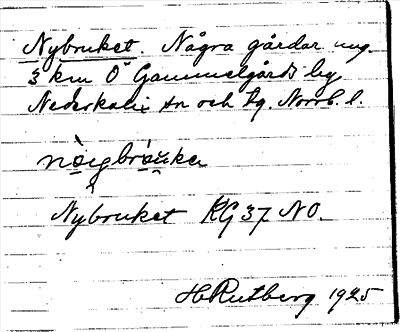 Nybruket. Några gårdar ung.
3 km Ö Gammelgårds by
Nederkalix sn och tg. Norrb. l.
Nybruket KG 37 NO.
H Rutberg 1925